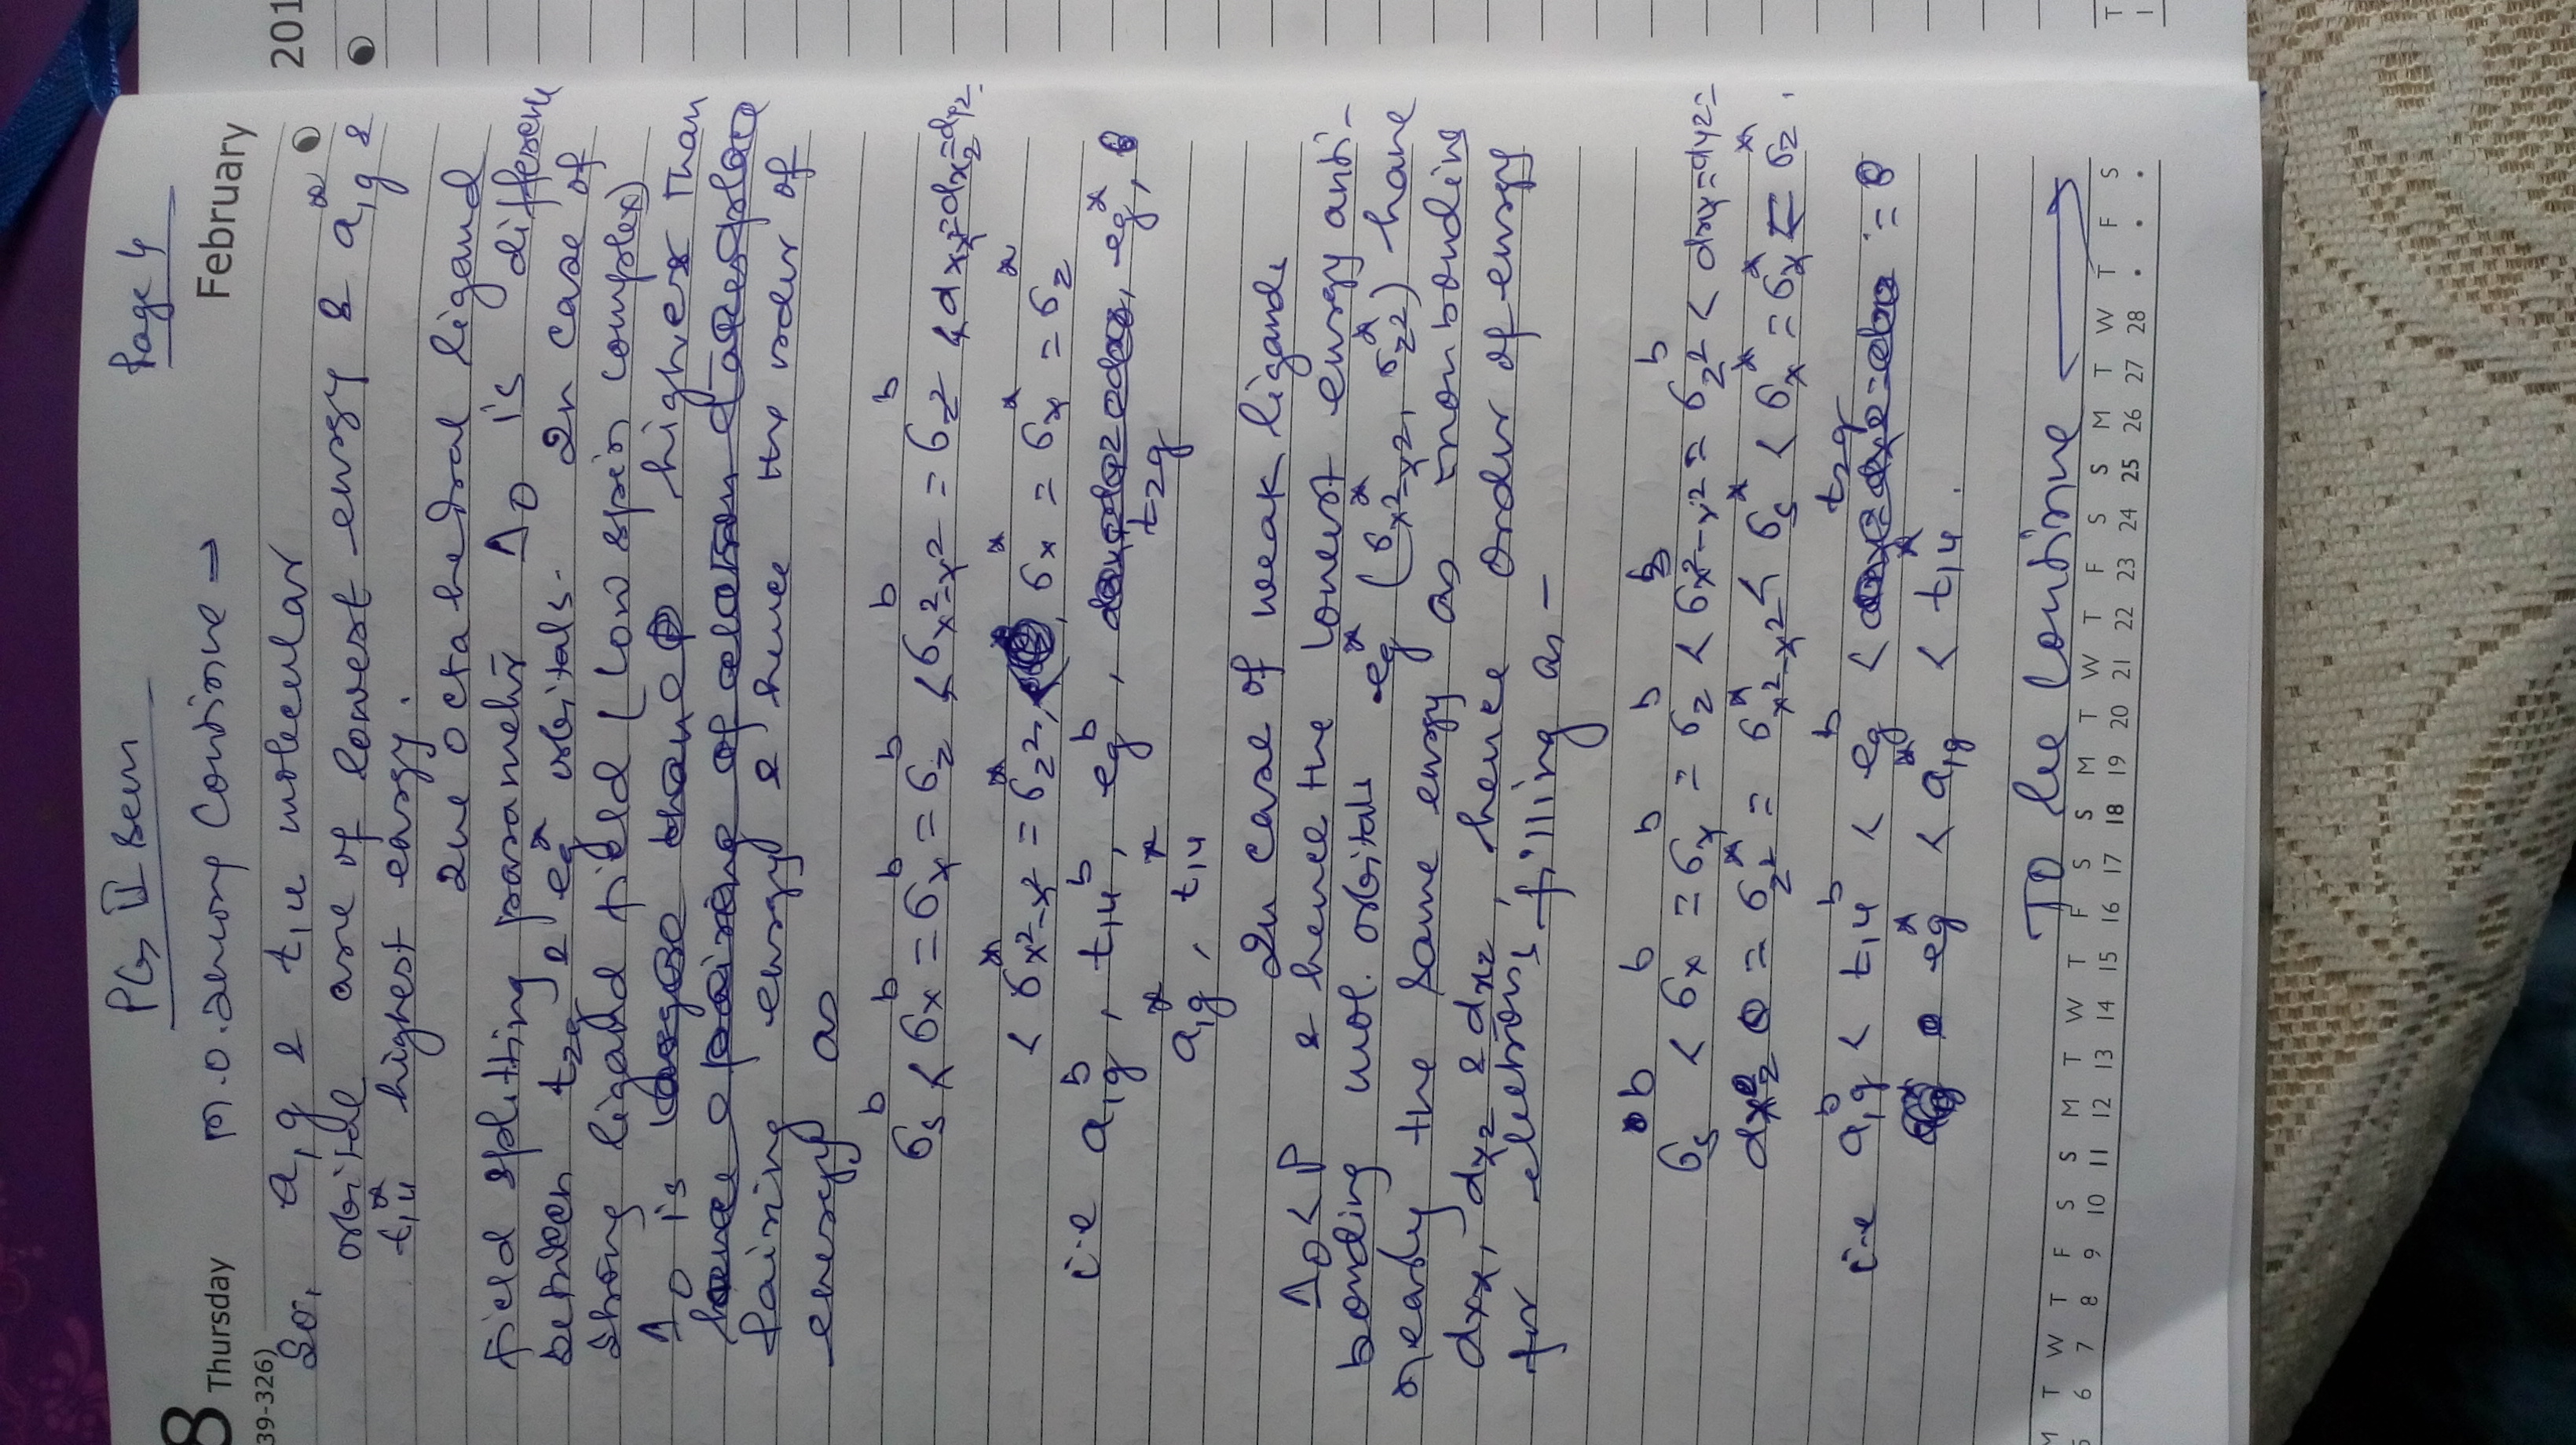 PG II Sem Page 4
8 Thursday February 201
39-326)
M.O. Theory Continue ⇒
So, a1g & t1u molecular
orbitals are of lowest energy & a1g* &
t1u* highest energy.
The octahedral ligand
field splitting parameter Δo is difference
between t2g & eg* orbitals. In case of
strong ligand field (low spin complex)
Δo is higher than
Pairing energy & hence the order of
energy as
σs^b < σx^b = σx^b = σz^b < σx²-x²^b = σz²^b < dxx = dxz = dyz.
< σ*x²-x² = σ*z², σx* = σx* = σz*
i.e a1g^b, t1u^b, eg^b, eg*,
t2g
a1g*, t1u*
In case of weak ligands
Δo < P & hence the lowest energy anti-
bonding mol. orbitals eg* (σ*x²-x², σ*z²) have
nearly the same energy as nonbonding
dxx, dxz & dxz, hence order of energy
for electrons filling as -
σs^b < σx^b = σx^b = σz^b < σx²-x²^b = σz²^b < dxy = dyz =
dxz = σ*z² = σ*x²-x² < σs* < σx* = σx* = σz*.
i.e a1g^b < t1u^b < eg^b < t2g =
eg* < a1g* < t1u*.
To be Continue
M T W T F S S M T W T F S S M T W T F S S M T W T F S S M T W T F S
6 7 8 9 10 11 12 13 14 15 16 17 18 19 20 21 22 23 24 25 26 27 28 . . .